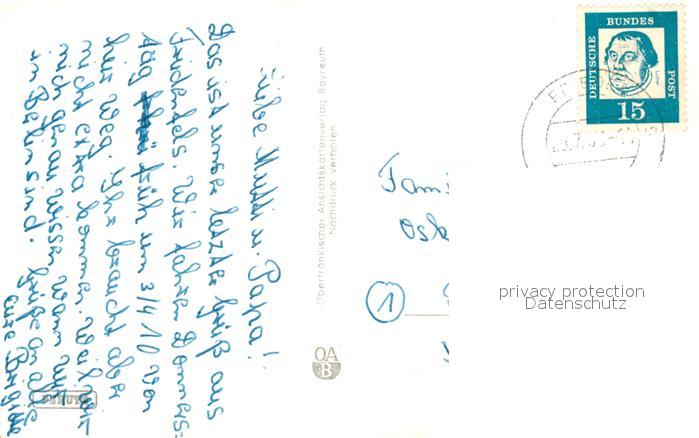 Liebe Mutti u. Papa!
Das ist unser letzter Gruß aus
Friedenfels. Wir fahren Donners-
tag früh um 3/4 10 von
hier weg. Ihr braucht aber
nicht extra kommen. Weil wir
nich genau wissen wann wir
in Berlin sind. Grüße an alle
eure Brigitte
Oberfränkischer Ansichtskartenverlag Bayreuth
Nachdruck verboten
OA
B
DEUTSCHE
BUNDES
POST
15
Fami
Osk
1
privacy protection
Datenschutz